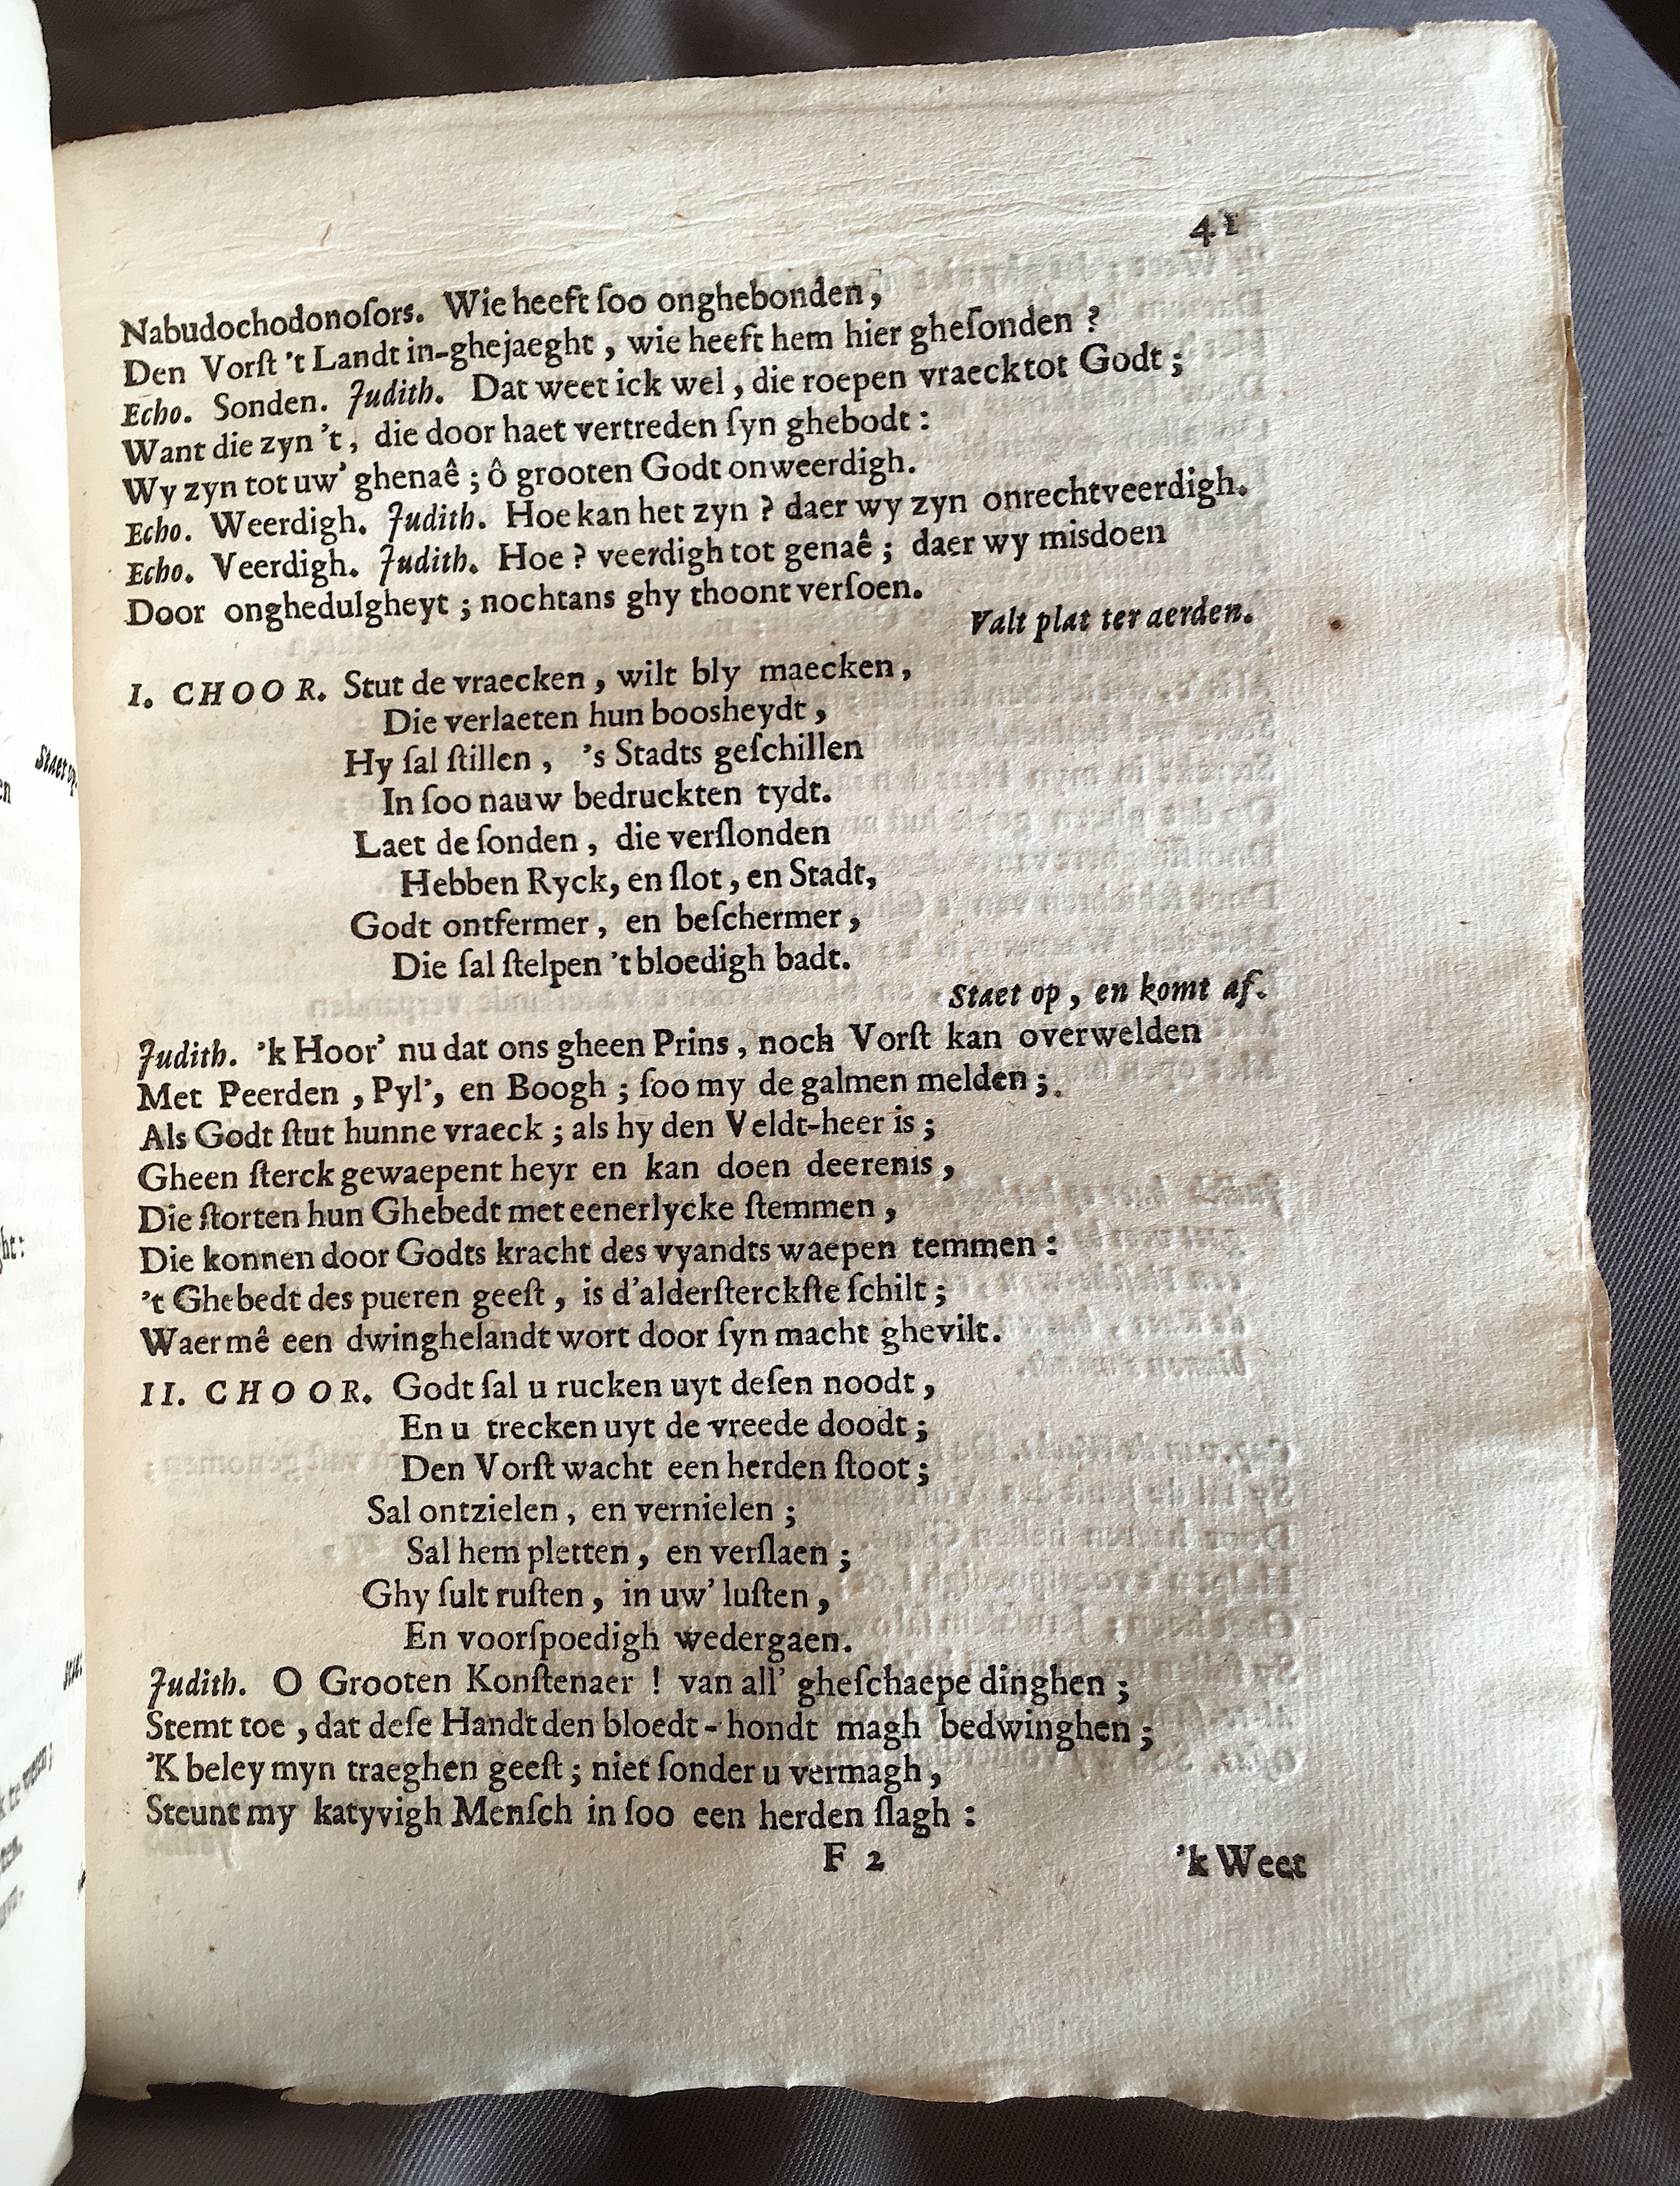 41
Nabudochodonoſors. Wie heeft ſoo onghebonden,
Den Vorſt 't Landt in-ghejaeght, wie heeft hem hier gheſonden?
Echo. Sonden. Judith. Dat weet ick wel, die roepen vraeck tot Godt;
Want die zyn 't, die door haet vertreden ſyn ghebodt:
Wy zyn tot uw' ghenaê; ô grooten Godt onweerdigh.
Echo. Weerdigh. Judith. Hoe kan het zyn? daer wy zyn onrechtveerdigh.
Echo. Veerdigh. Judith. Hoe? veerdigh tot genaê; daer wy misdoen
Door onghedulgheyt; nochtans ghy thoont verſoen.
Valt plat ter aerden.
I. CHOOR. Stut de vraecken, wilt bly maecken,
Die verlaeten hun boosheydt,
Hy ſal ſtillen, 's Stadts geſchillen
In ſoo nauw bedruckten tydt.
Laet de ſonden, die verſlonden
Hebben Ryck, en ſlot, en Stadt,
Godt ontfermer, en beſchermer,
Die ſal ſtelpen 't bloedigh badt.
Staet op, en komt af.
Judith. 'k Hoor' nu dat ons gheen Prins, noch Vorſt kan overwelden
Met Peerden, Pyl', en Boogh; ſoo my de galmen melden;
Als Godt ſtut hunne vraeck; als hy den Veldt-heer is;
Gheen ſterck gewaepent heyr en kan doen deerenis,
Die ſtorten hun Ghebedt met eenerlycke ſtemmen,
Die konnen door Godts kracht des vyandts waepen temmen:
't Ghebedt des pueren geeſt, is d'alderſterckſte ſchilt;
Waer mê een dwinghelandt wort door ſyn macht ghevilt.
II. CHOOR. Godt ſal u rucken uyt deſen noodt,
En u trecken uyt de vreede doodt;
Den Vorſt wacht een herden ſtoot;
Sal ontzielen, en vernielen;
Sal hem pletten, en verſlaen;
Ghy ſult ruſten, in uw' luſten,
En voorſpoedigh wedergaen.
Judith. O Grooten Konſtenaer! van all' gheſchaepe dinghen;
Stemt toe, dat deſe Handt den bloedt-hondt magh bedwinghen;
'K beley myn traeghen geeſt; niet ſonder u vermagh,
Steunt my katyvigh Menſch in ſoo een herden ſlagh:
F 2 'k Weet